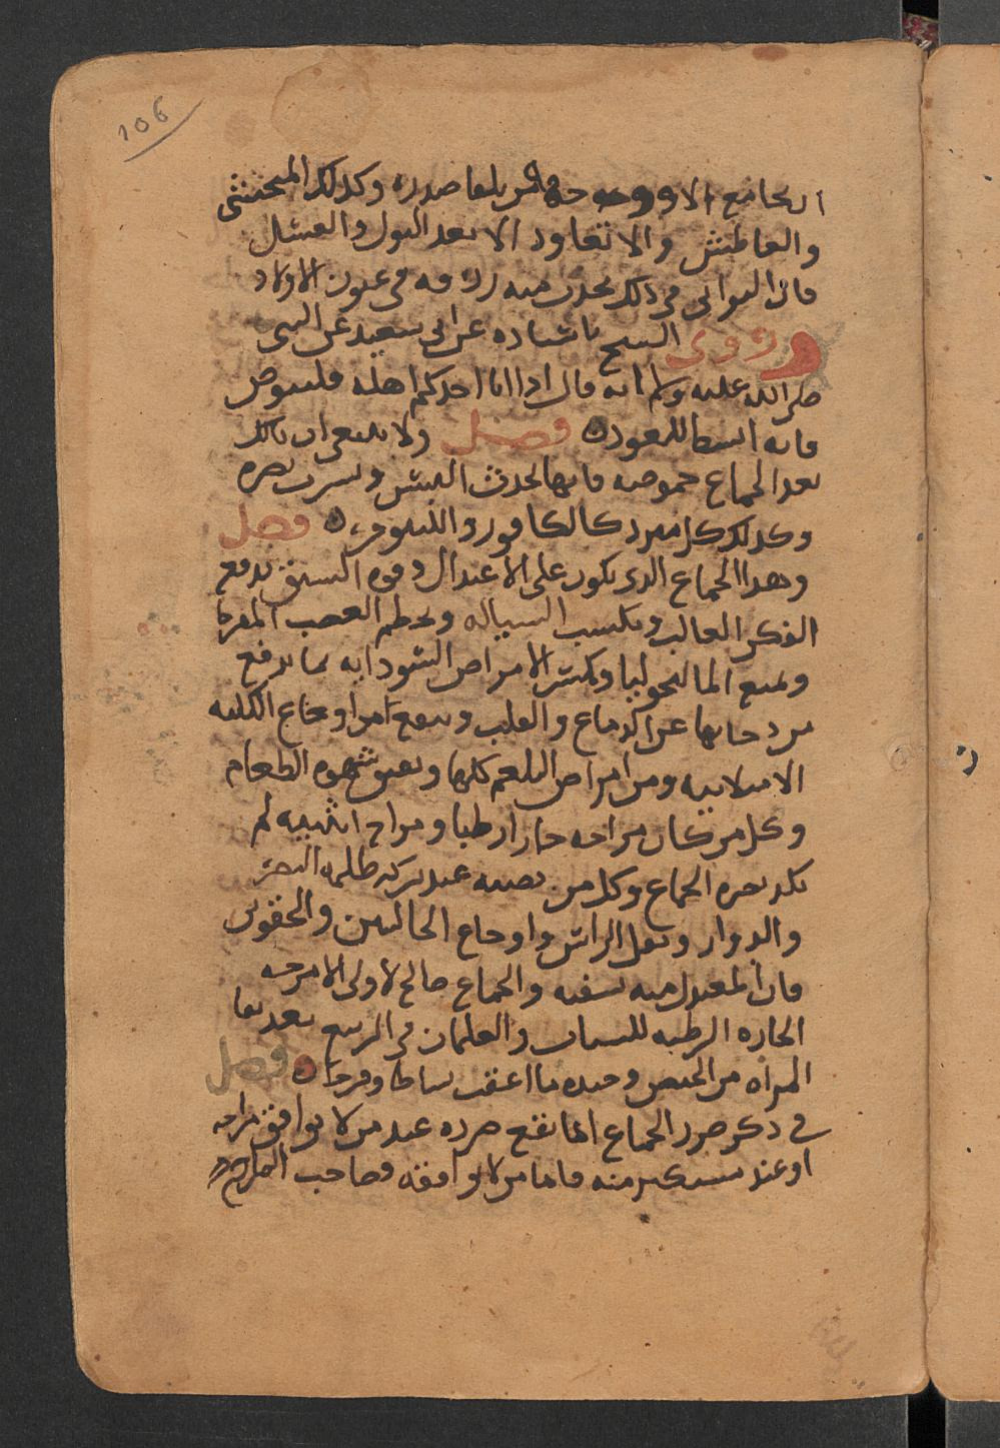 106
الجامع الا ووجه من بلقا صدره وكذلك المحتشى
والعاطش والا تعاود الا بعد البول والغسل
فان التوانى فى ذلك يحدث منه فى عيون الاولاد
وروى الشيخ باسناده عن ابى سعيد عن النبى
صلى الله عليه وسلم انه قال اذا اتا احدكم اهله فليتوض
فانه انشط للعود فصل ولا ينبغى ان ياكل
بعد الجماع حموضه فانها تحدث اليبس
وكذلك كل مبرد كالكافور والنيلوفر فصل
وهذا الجماع الذى يكون على الاعتدال وقوه الشبق يدفع
الفكر الغالب ويكسب البساله ويحطم الغضب المفرط
ويمنع المالنخوليا وكثير الامراض السوداىيه بما يدفع
من دخانها عن الدماغ والقلب وينفع من اوجاع الكليه
الامتلاييه ومن امراض البلغم كلها ويفتق شهوه الطعام
وكل من كان مزاجه حارا رطبا ومزاج انثييه لم
يكد الجماع وكل من يصيبه عند تركه ظلمه البصر
والدوار وثقل الراس واوجاع الحالبين والحقوين
فان المعتدل منه يشفيه والجماع صالح لاولى الامزجه
الحاره الرطبه للشباب والغلمان فى الربيع بعد نقا
المراه من الحيض وحيده ما اعقب نشاطا وفرحا فصل
فى ذكر ضرر الجماع انما يقع ضرره عند من لا يوافق مزاجه
او عند مستكثر منه فاما من لا يوافقه فصاحب المزاج